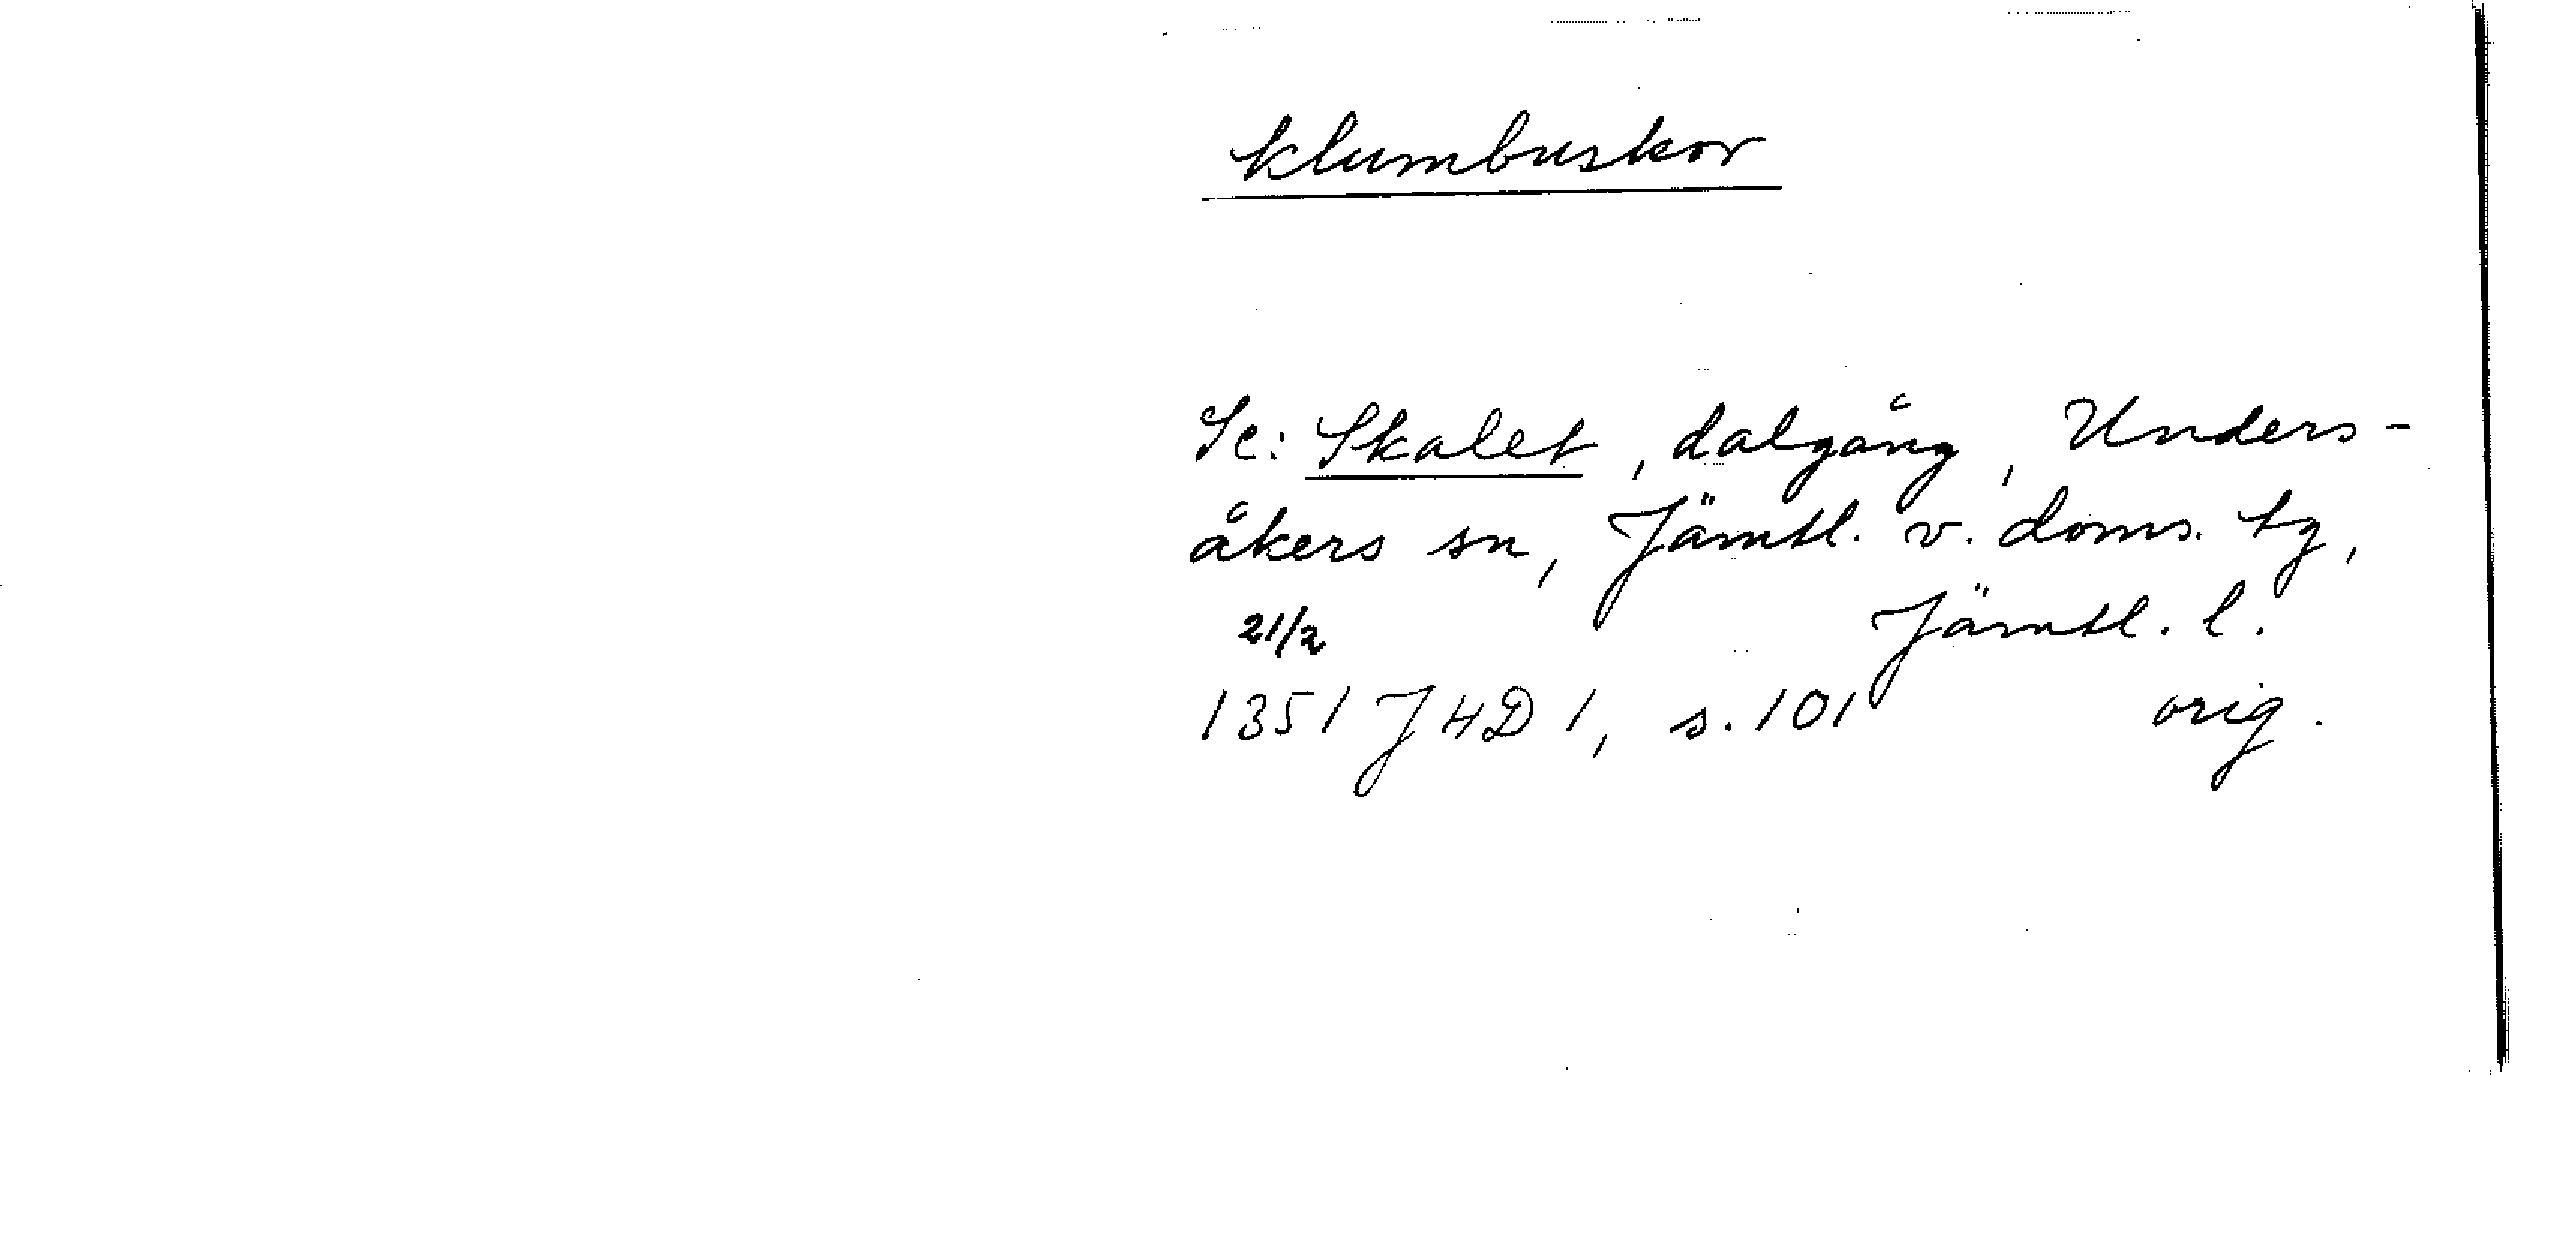 klumbuskor
Se: Skalet, dalgång, Unders-
åkers sn, Jämtl. v. doms. tg,
21/2 Jämtl. l.
1351 J4D 1, s. 101 orig.